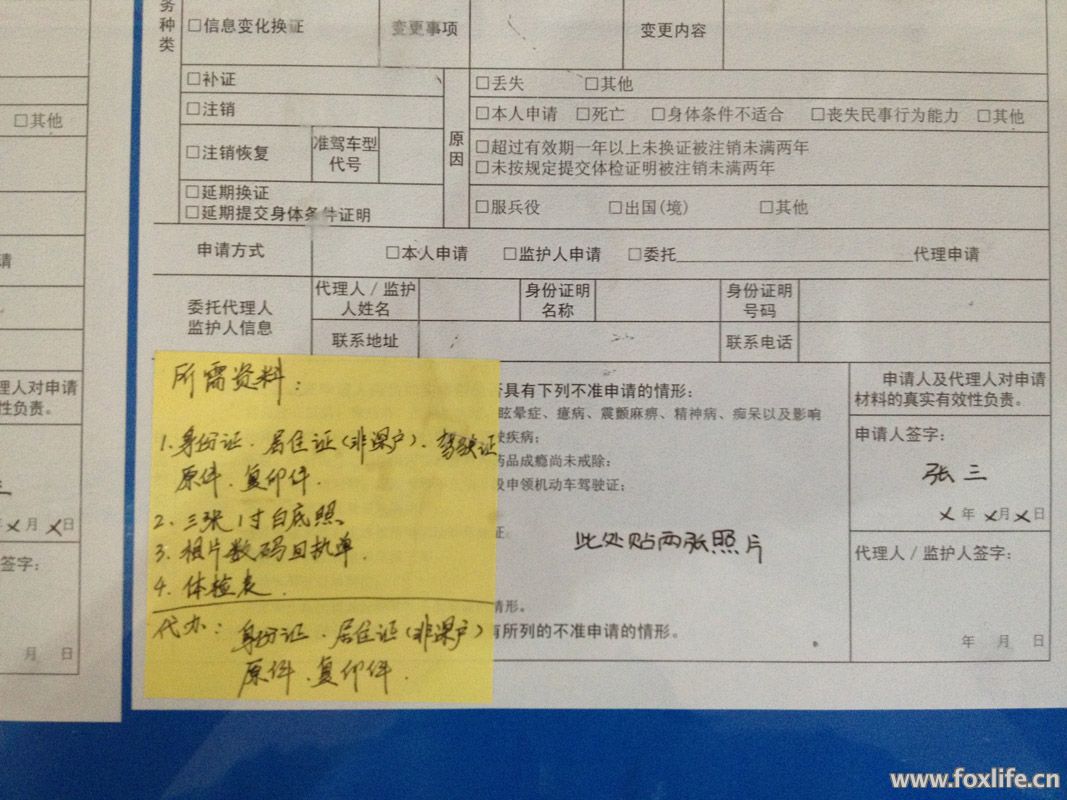 务
种
类
□信息变化换证
变更事项
变更内容
□补证
□丢失 □其他
□注销
□本人申请 □死亡 □身体条件不适合 □丧失民事行为能力 □其他
□其他
□注销恢复
准驾车型
代号
原
因
□超过有效期一年以上未换证被注销未满两年
□未按规定提交体检证明被注销未满两年
□延期换证
□延期提交身体条件证明
□服兵役 □出国(境) □其他
申请方式
□本人申请 □监护人申请 □委托 代理申请
请
委托代理人
监护人信息
代理人/监护
人姓名
身份证明
名称
身份证明
号码
联系地址
联系电话
所需资料:
1.身份证.居住证(非深户).驾驶证
原件.复印件.
2.三张1寸白底照
3.相片数码回执单.
4.体检表.
代办:身份证.居住证(非深户)
原件、复印件.
具有下列不准申请的情形:
眩晕症、癔病、震颤麻痹、精神病、痴呆以及影响
疾病;
药品成瘾尚未戒除:
申领机动车驾驶证;
证:
此处贴两张照片
情形。
有所列的不准申请的情形。
申请人及代理人对申请
材料的真实有效性负责。
申请人签字:
张三
x年x月x日
代理人/监护人签字:
年 月 日
理人对申请
性负责。
三
x月x日
签字:
月 日
www.foxlife.cn